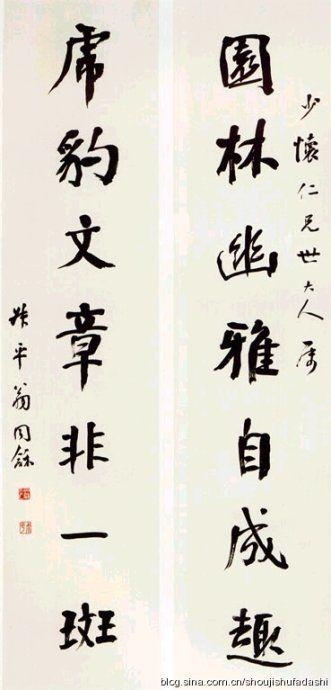 少懷仁兄世大人属
園林幽雅自成趣
虎豹文章非一斑
叔平翁同龢
blog.sina.com.cn/shoujishufadashi